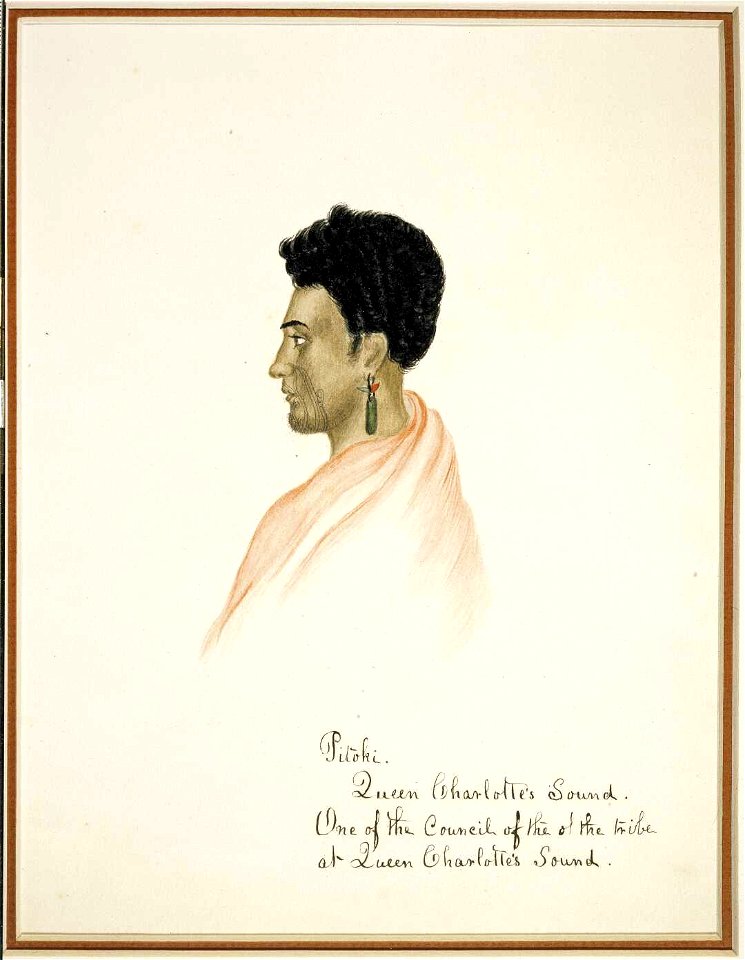 Pitoki.
Queen Charlotte's Sound.
One of the Council of the of the tribe
at Queen Charlotte's Sound.